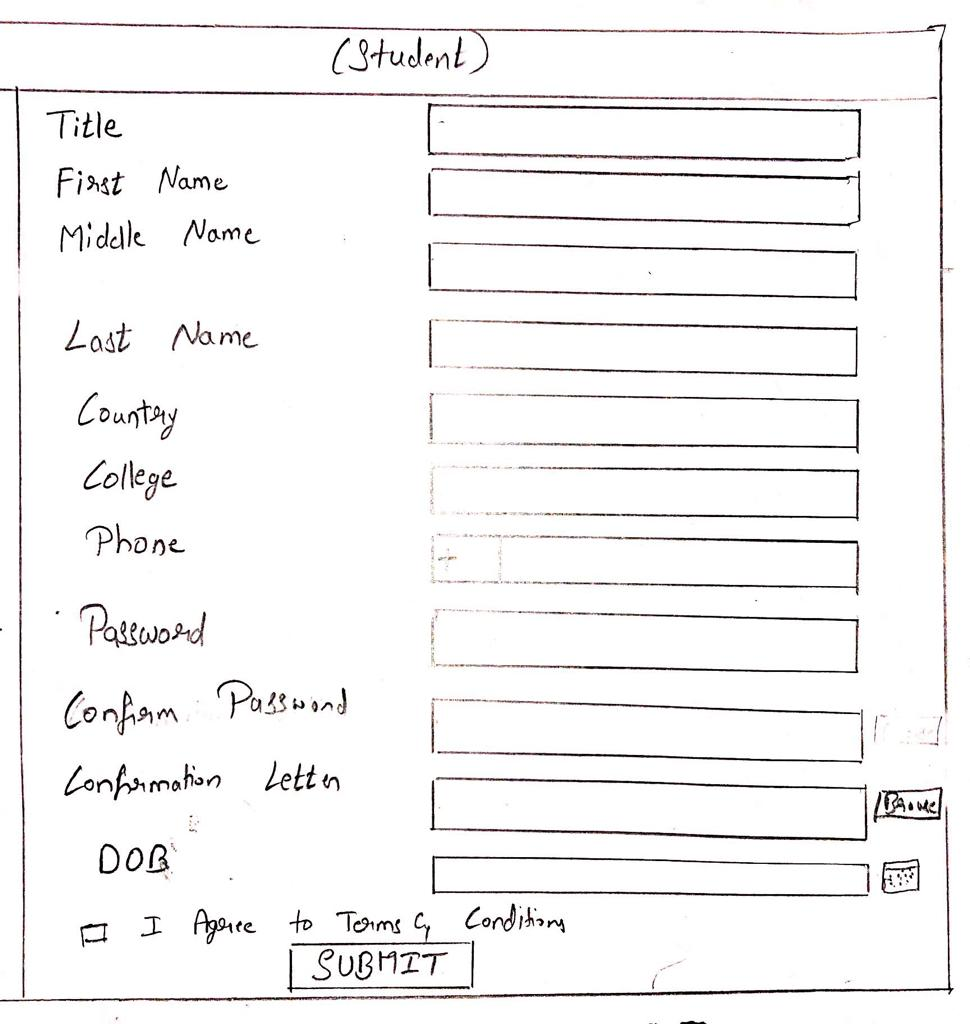 (Student)
Title
First Name
Middle Name
Last Name
Country
College
Phone +
Password
Confirm Password
Confirmation Letter Browse
DOB
I Agree to Terms & Conditions
SUBMIT